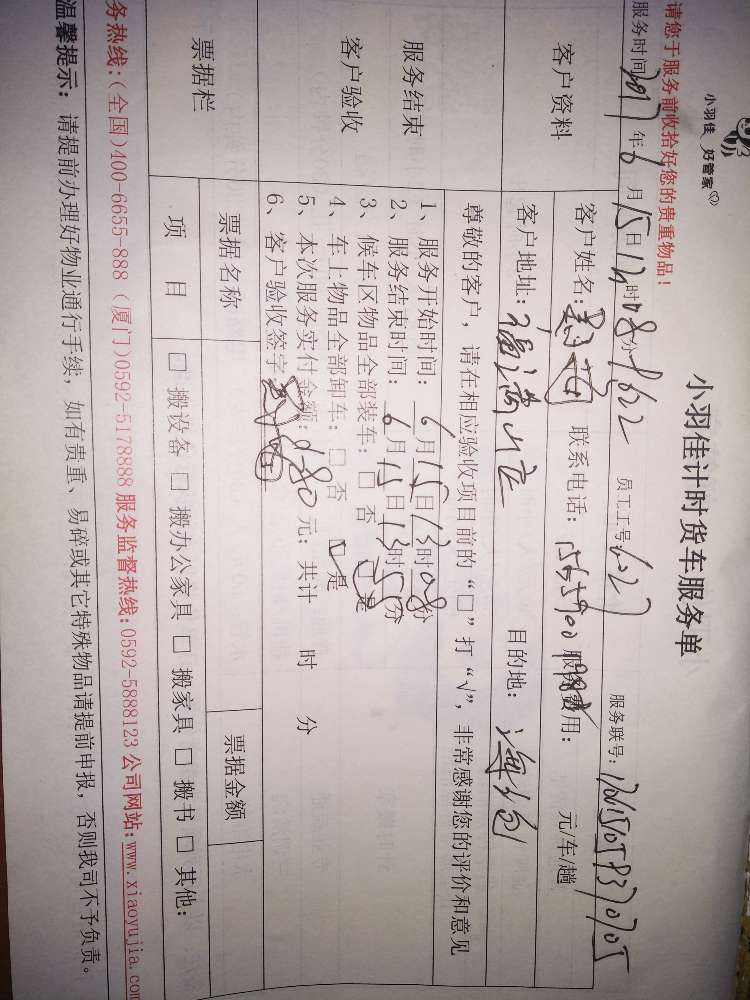 小羽佳 好管家
小羽佳计时货车服务单
请您于服务前收拾好您的贵重物品！
服务时间 2017 年 6 月 15 日 12 时 08 分 员工工号 服务联号：
客户资料 客户姓名： 联系电话： 服务费用： 元/车/趟
客户地址： 目的地： 海沧
尊敬的客户，请在相应验收项目前的“□”打“√”，非常感谢您的评价和意见
服务结束
客户验收
1、服务开始时间： 6 月 15 日 13 时 08 分
2、服务结束时间： 6 月 15 日 13 时 55 分
3、候车区物品全部装车：□ 否 □ 是
4、车上物品全部卸车：□ 否 □ 是
5、本次服务实付金额： 元；共计 时 分
6、客户验收签字
票据栏 票据名称 票据金额
项 目 □ 搬设备 □ 搬办公家具 □ 搬家具 □ 搬书 □ 其他：
务热线：(全国)400-6655-888 (厦门)0592-5178888 服务监督热线：0592-5888123 公司网站：www.xiaoyujia.com
温馨提示：请提前办理好物业通行手续，如有贵重、易碎或其它特殊物品请提前申报，否则我司不予负责。